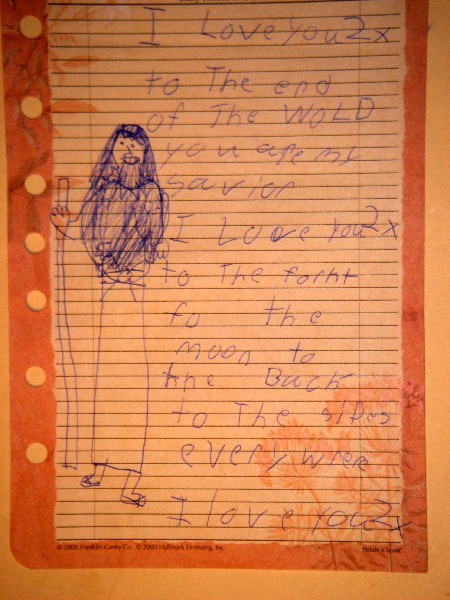 I Love you 2x
to The end
of The WOLD
you are my
savior
I Loove you 2x
to The forht
fo the
moon to
the Back
to The sides
every wree
I love you 2x
© 2000 Franklin Covey Co. © 2000 Hallmark Licensing, Inc.
Petals-Classic